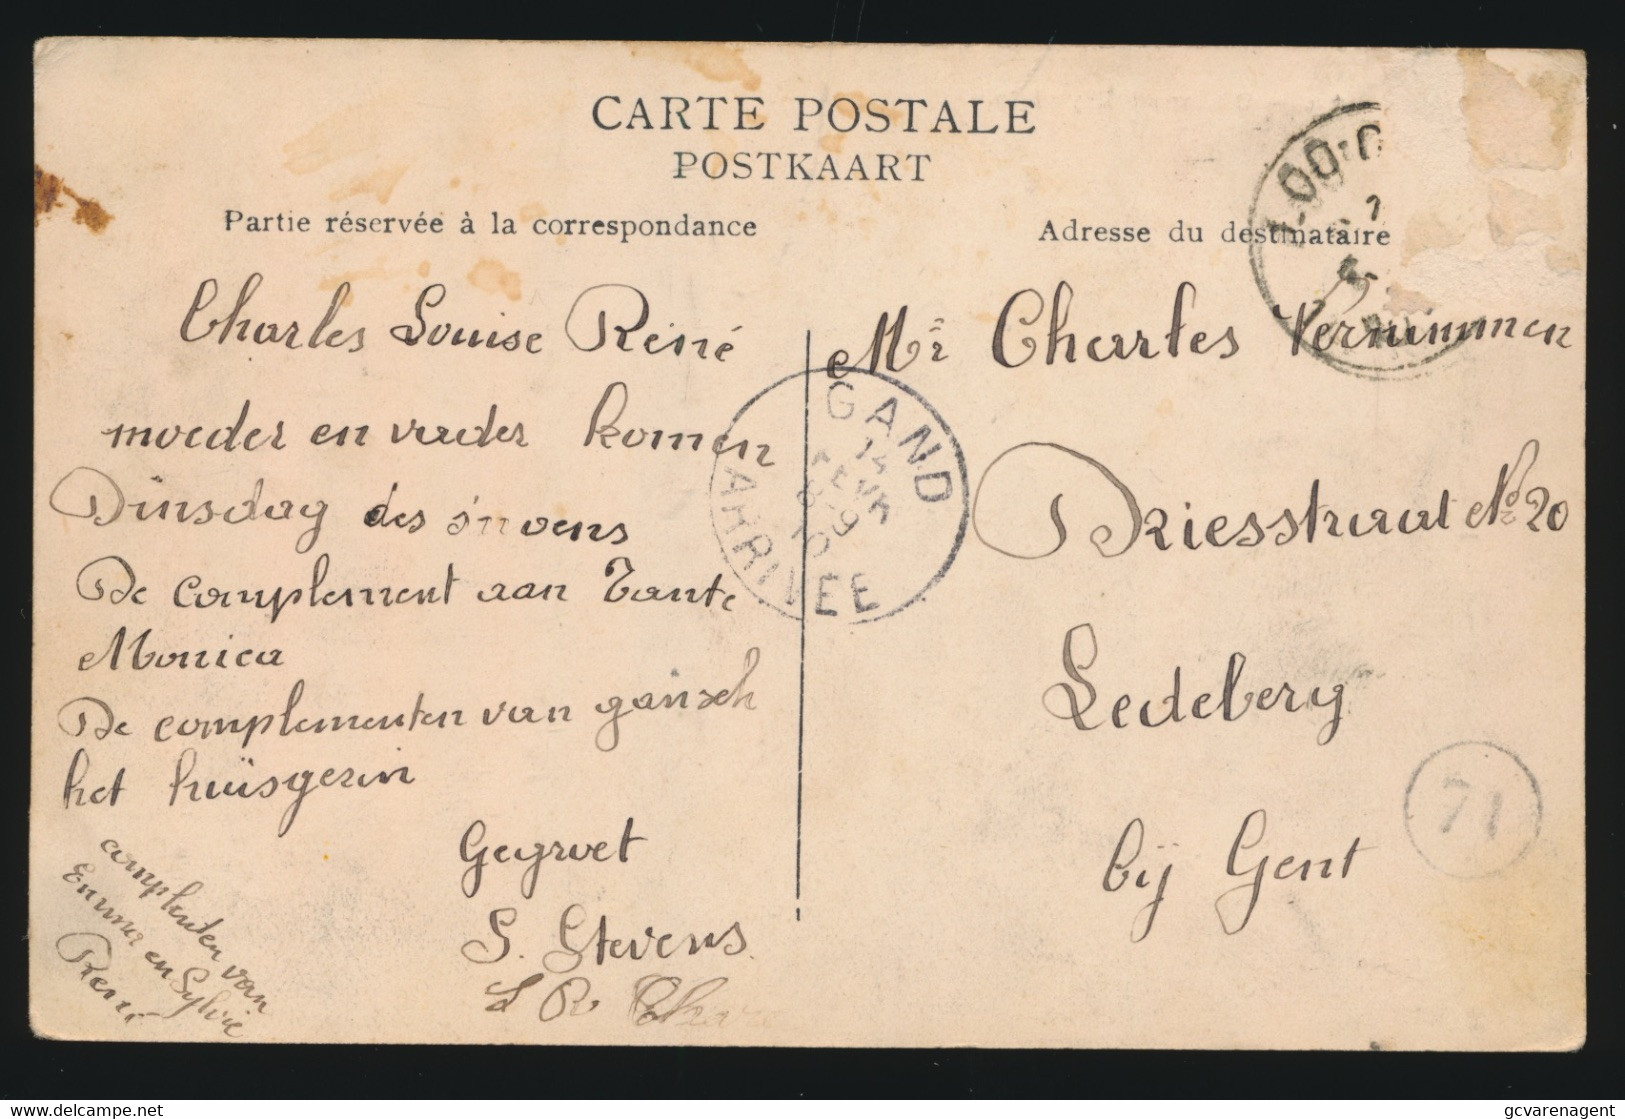 CARTE POSTALE
POSTKAART
Partie réservée à la correspondance
Adresse du destinataire
Charles Louise René
moeder en vader komen
Dinsdag des
De complement aan Tante
Monica
De complementen van gansch
het huisgezin
Gegroet
S. Stevens
complenten van
Emma en Sylvie
René
Mr Charles Vernimmen
Driesstraat No 20
Ledeberg
bij Gent
GAND
14
8-9
10
ARRIVÉE
71
www.delcampe.net
gcvarenagent